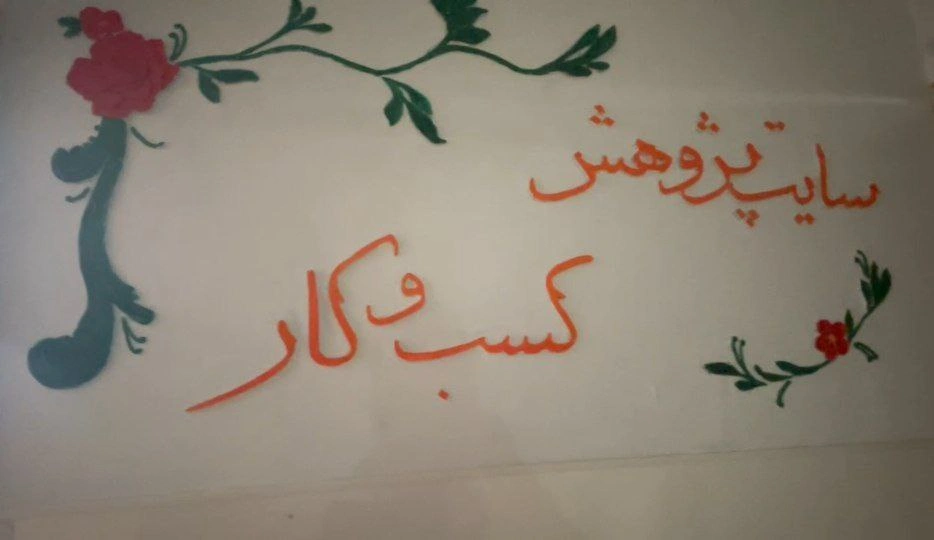 سایت پژوهش
کسب و کار